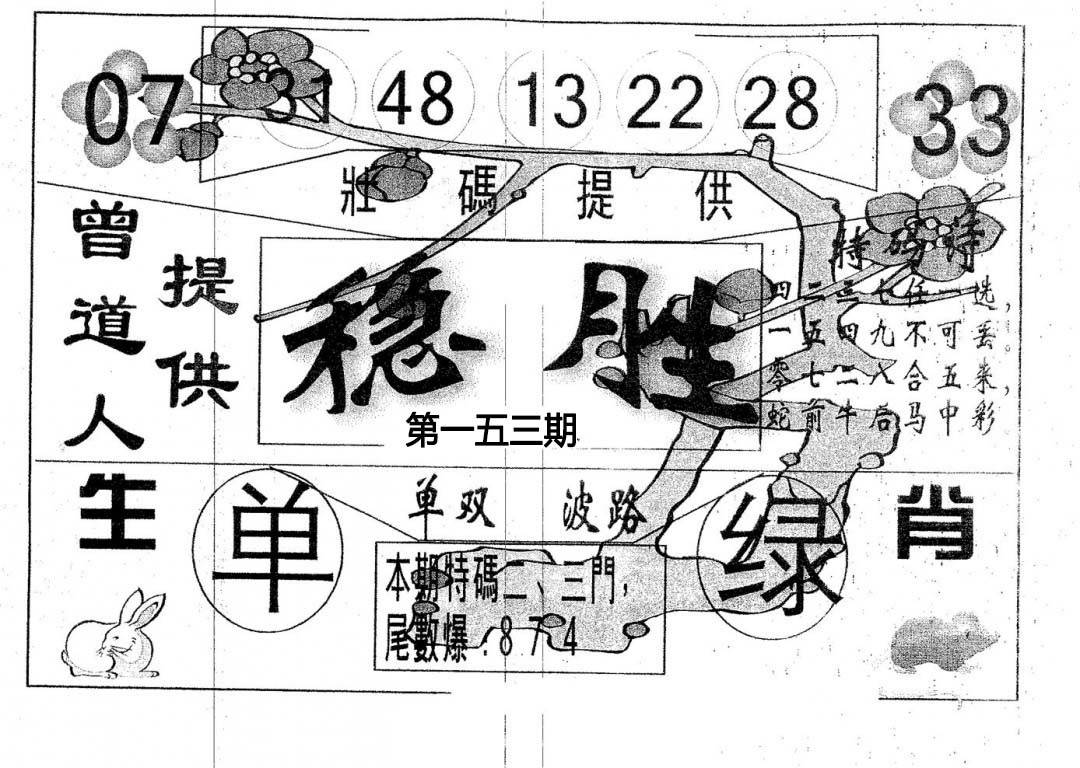 07 31 48 13 22 28 33
壯碼提供
曾道人
提供
特码诗
四二三七任一选，
一五四九不可丢。
零七二八合五来，
蛇前牛后马中彩
稳胜
第一五三期
生肖
单
单双 波路
绿
本期特碼二、三門，
尾數爆：874